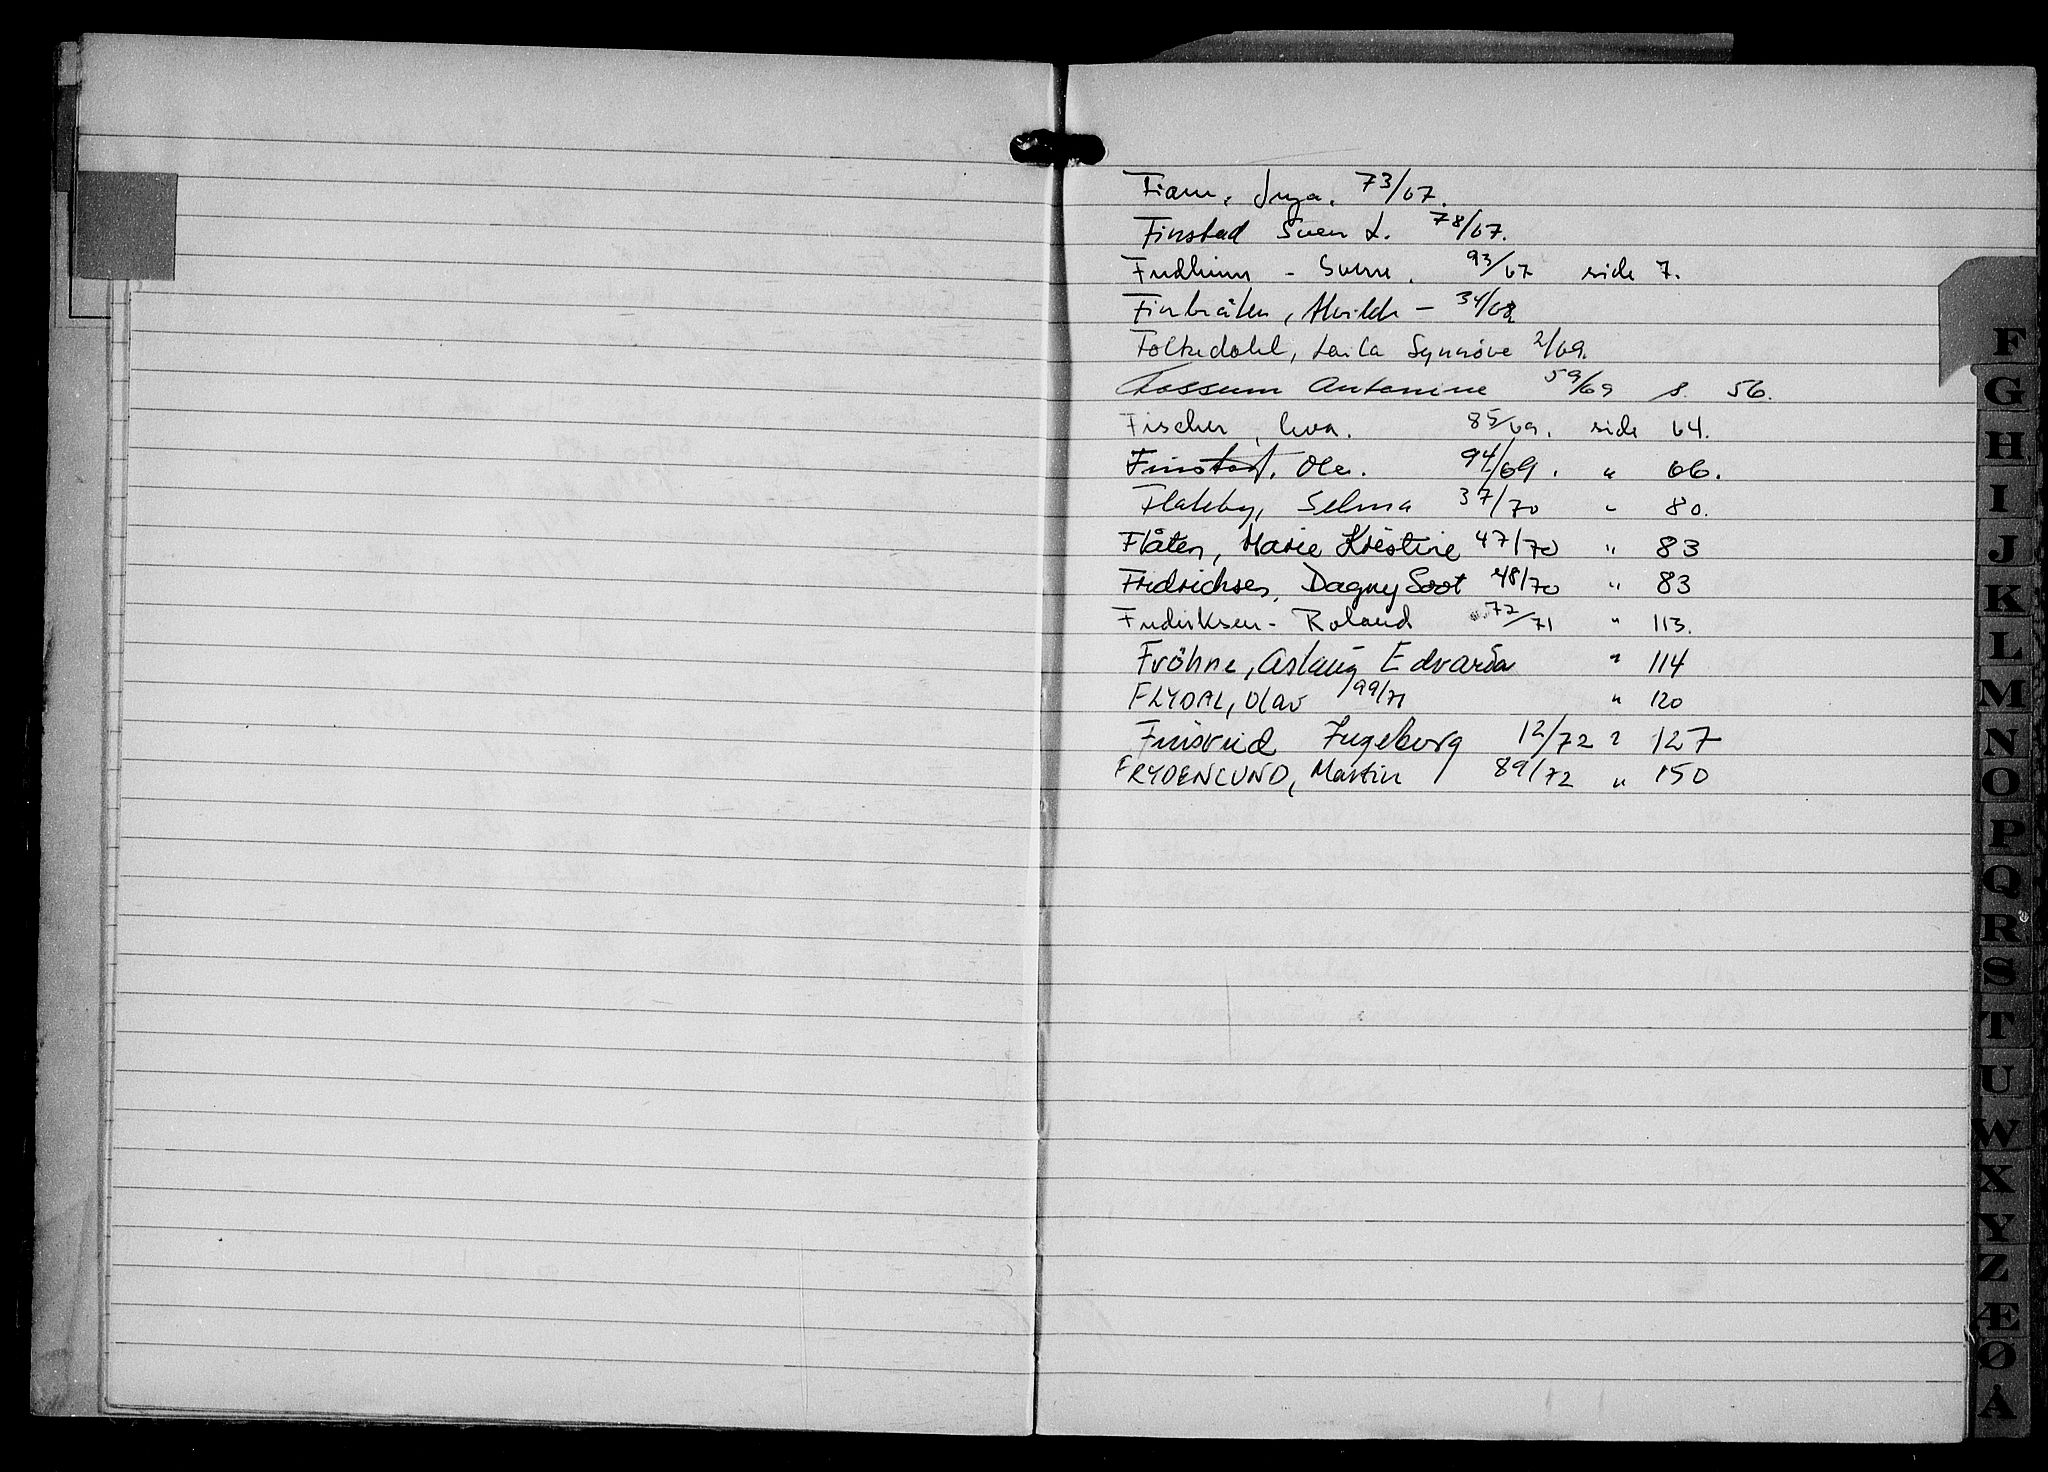 Fiam, Inga. 73/67.
Finstad Sven L. 78/67.
Fredheim - Sverre. 93/67 side 7.
Finbråten, Alvilde - 34/68
Folkedahl, Laila Synnöve 2/69.
Fossum Antonine 59/69 s. 56.
Fischer, Ewa. 85/69. side 64.
Finstad, Ole. 94/69. " 66.
Flateby, Selma 37/70 " 80.
Flåten, Marie Kristine 47/70 " 83
Fredrichsen, Dagny Soot 48/70 " 83
Frederiksen - Roland 72/71 " 113.
Fröhne, Aslaug Edvarda " 114
FLYDAL, Olav 99/71 " 120
Finsrud Ingeborg 12/72 " 127
FRYDENLUND, Martin 89/72 " 150
F
G
H
I
J
K
L
M
N
O
P
Q
R
S
T
U
W
X
Y
Z
Æ
Ø
Å